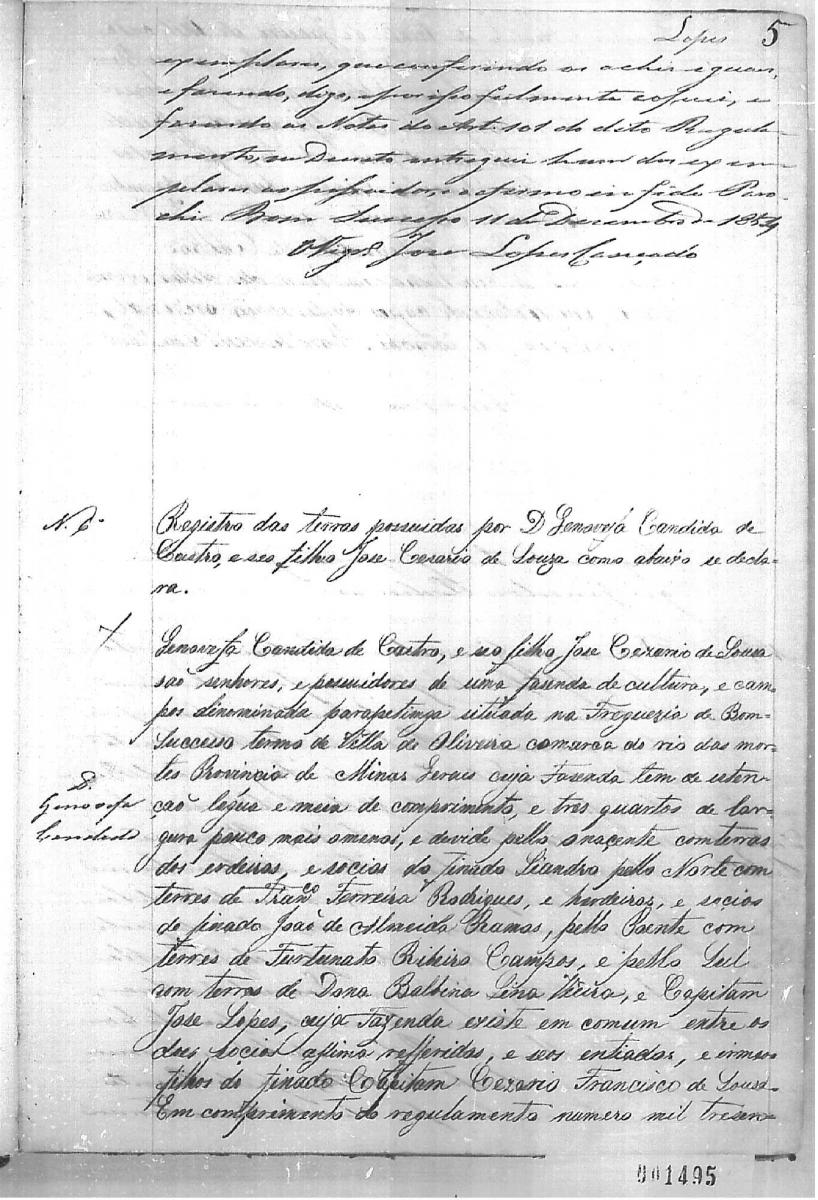 Lopes 5
exemplares, que conferindo os achei iguaes,
e fazendo, digo, e por isso fielmente copiei, e
fazendo as Notas do Art. 101 do dito Regula-
mento, ou Decreto entreguei hum dos exem-
plares ao possuidor, e afirmo in fide Paro-
chi Bom Successo 11 de Dezembro de 1854
O Vigrº José Lopes Cançado
N. 6º
Registro das terras possuidas por D Genovefa Candida de
Castro, e seo filho Jose Cesario de Souza como abaixo se decla-
ra.
Genovefa Candida de Castro, e seo filho Jose Cezario de Sousa
são senhores, e possuidores de uma fasenda de cultura, e cam
pos dinominada parapetinga sitûada na Freguezia de Bom-
Successo termo de Villa de Oliveira comarca do rio das mor-
tes Provincia de Minas Gerais cuja Fazenda tem de esten-
D.
Genovefa
Candida
ção legua e meia de comprimento, e tres quartos de lar-
gura pouco mais amenos, e devide pello onaçente com terras
dos erdeiros, e socios do finado Liandro pello Norte com
terres de Franco Ferreira Rodrigues, e herdeiros, e soçios
do finado João de Almeida Ramos, pello Poente com
terres de Furtunato Ribeiro Campos, e pello Sul
com terras de Dona Balbina Lina Vieira, e Capitam
Jose Lopes, cuja Fazenda existe em comum entre os
dois soçios assima refferidos, e seos entiados, e irmaos
filhos do finado Capitam Cezario Francisco de Sousa-
Em comprimento do regulamento numero mil tresen-
001495